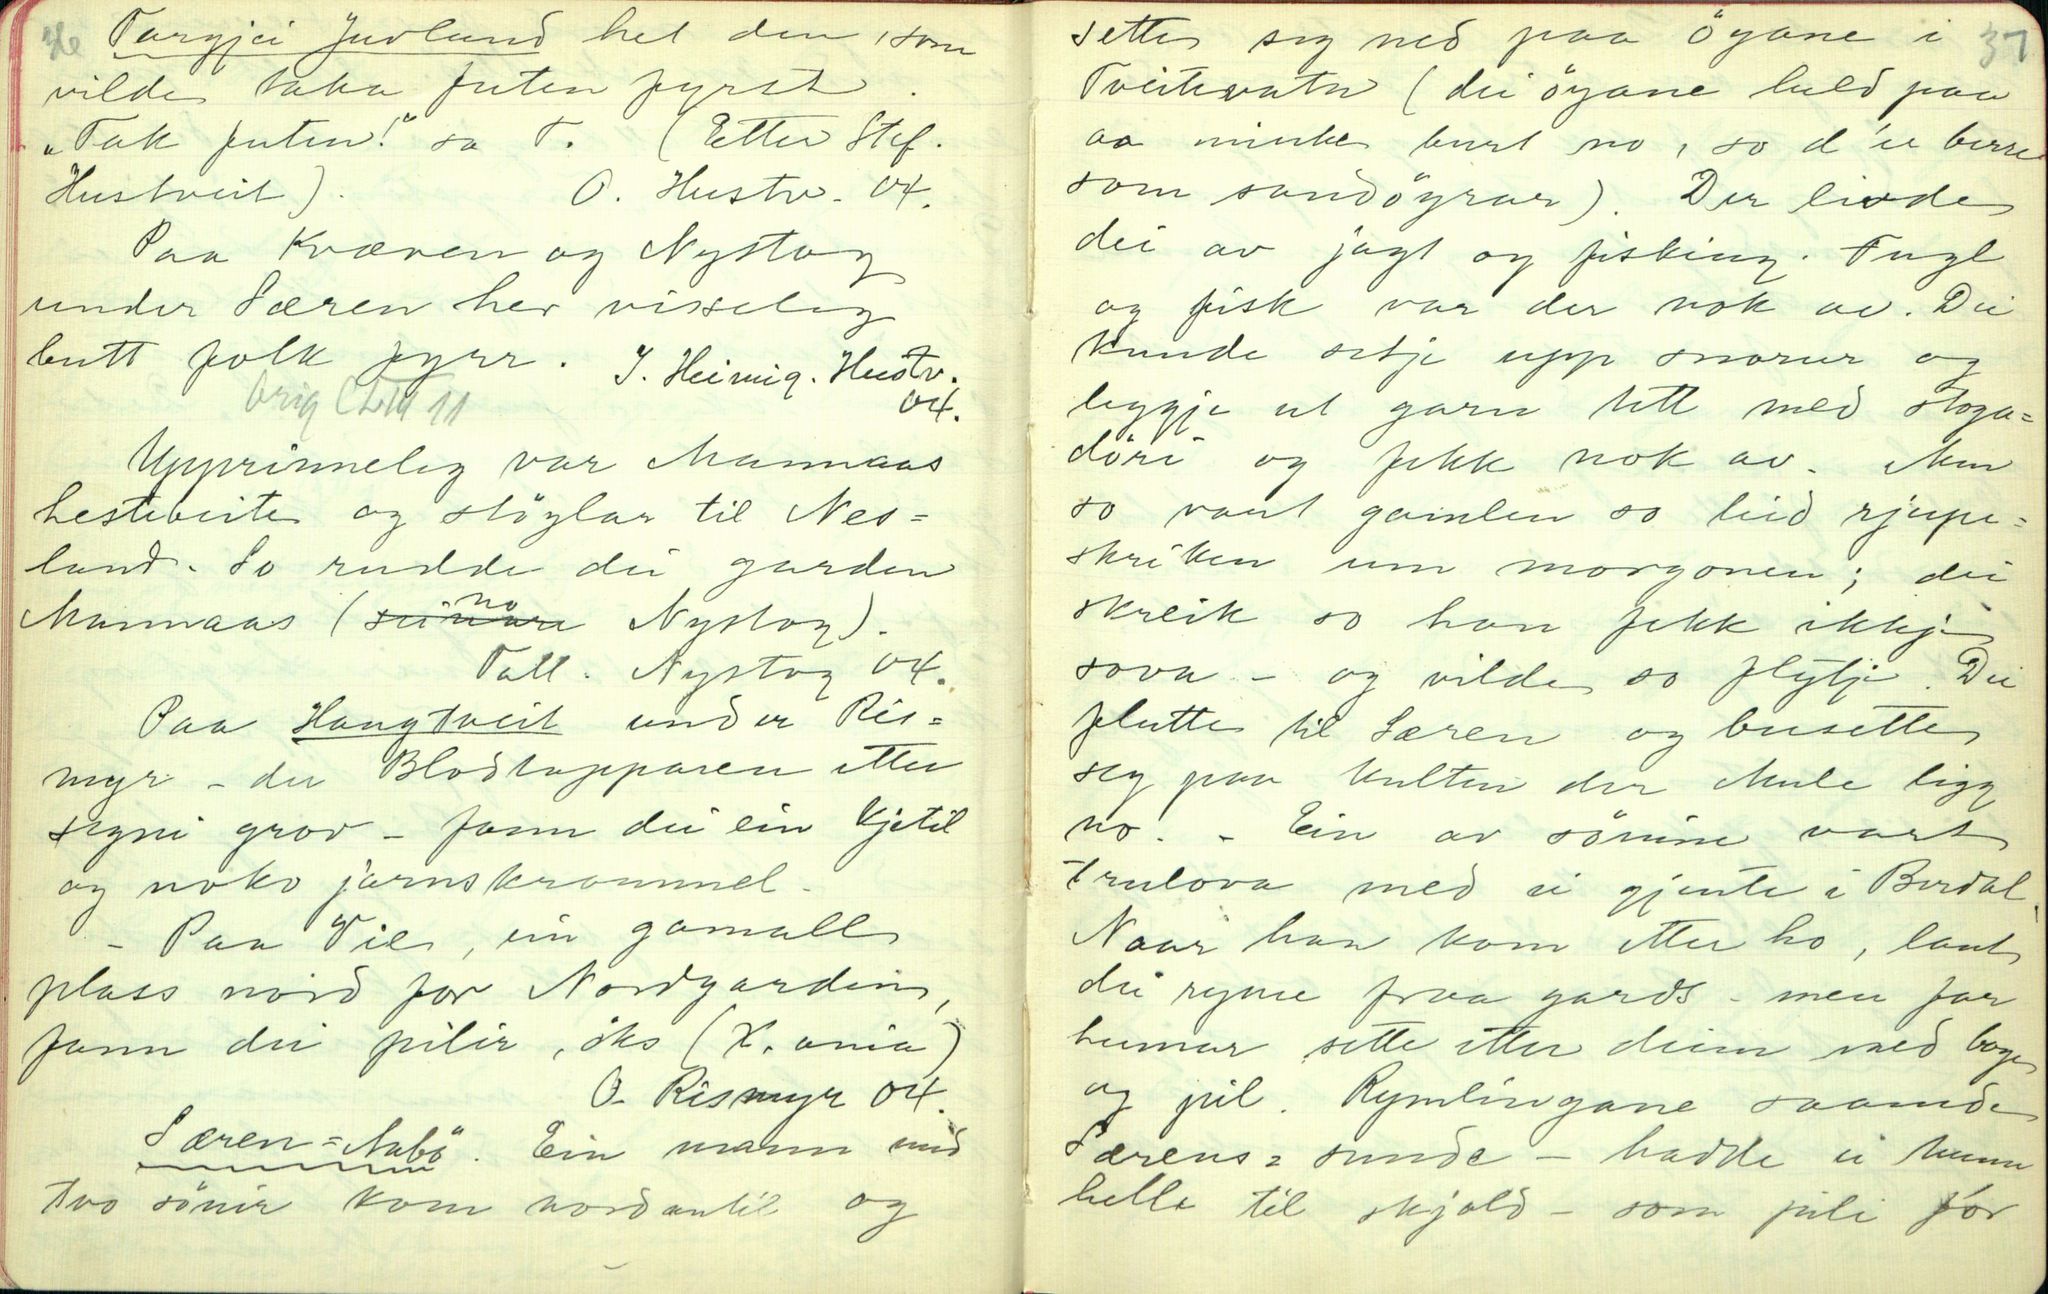 36
Targjei Juvland het den, som
vilde taka futen fyrst.
"Tak futen!" sa T. (Etter Stef.
Hustveit). O. Hustv. 04.
Paa Kvæven og Nystog
under Særen her visseleg
butt folk fyrr. J. Heimig. Hustv.
04.
Upprinneleg var Mannaas
hesteveite og stöylar til Nes=
land. So rudde dei garden
Mannaas (no Nystog).
Tall. Nystog 04.
Paa Haugtveit under Ris=
myr - der Blodtapparen etter
segni grov - fann dei ein kjetil
og noko jarnskrammel.
- Paa Vie, ein gamall
plass nord for Nordgarden,
fann dei pilir, öks (X.ania)
O. Rismyr 04.
Særen=Nabö. Ein mann med
tvo sönir kom nordantil og
37
sette seg ned paa öyane i
Tveitevatn (dei öyane held paa
aa minke burt no, so d'æ berre
som sandöyrar). Der livde
dei av jagt og fisking. Fugl
og fisk var der nok av. Dei
kunde setje upp snorur og
leggje ut garn tett med stoga=
döri og fekk nok av. Men
so vart gamlen so leid rjupe=
skriken um morgonen; dei
skreik so han fekk ikkje
sova - og vilde so flytje. Dei
flutte til Særen og busette
seg paa kulten der Mule ligg
no. - Ein av sönine vart
trulova med ei gjente i Berdal.
Naar han kom etter ho, laut
dei ryme fraa gards - men far
hennar sette etter deim med boge
og pil. Rymlingane saamde
Særens= sunde - hadde ei tunn
helle til skjold - som pili for